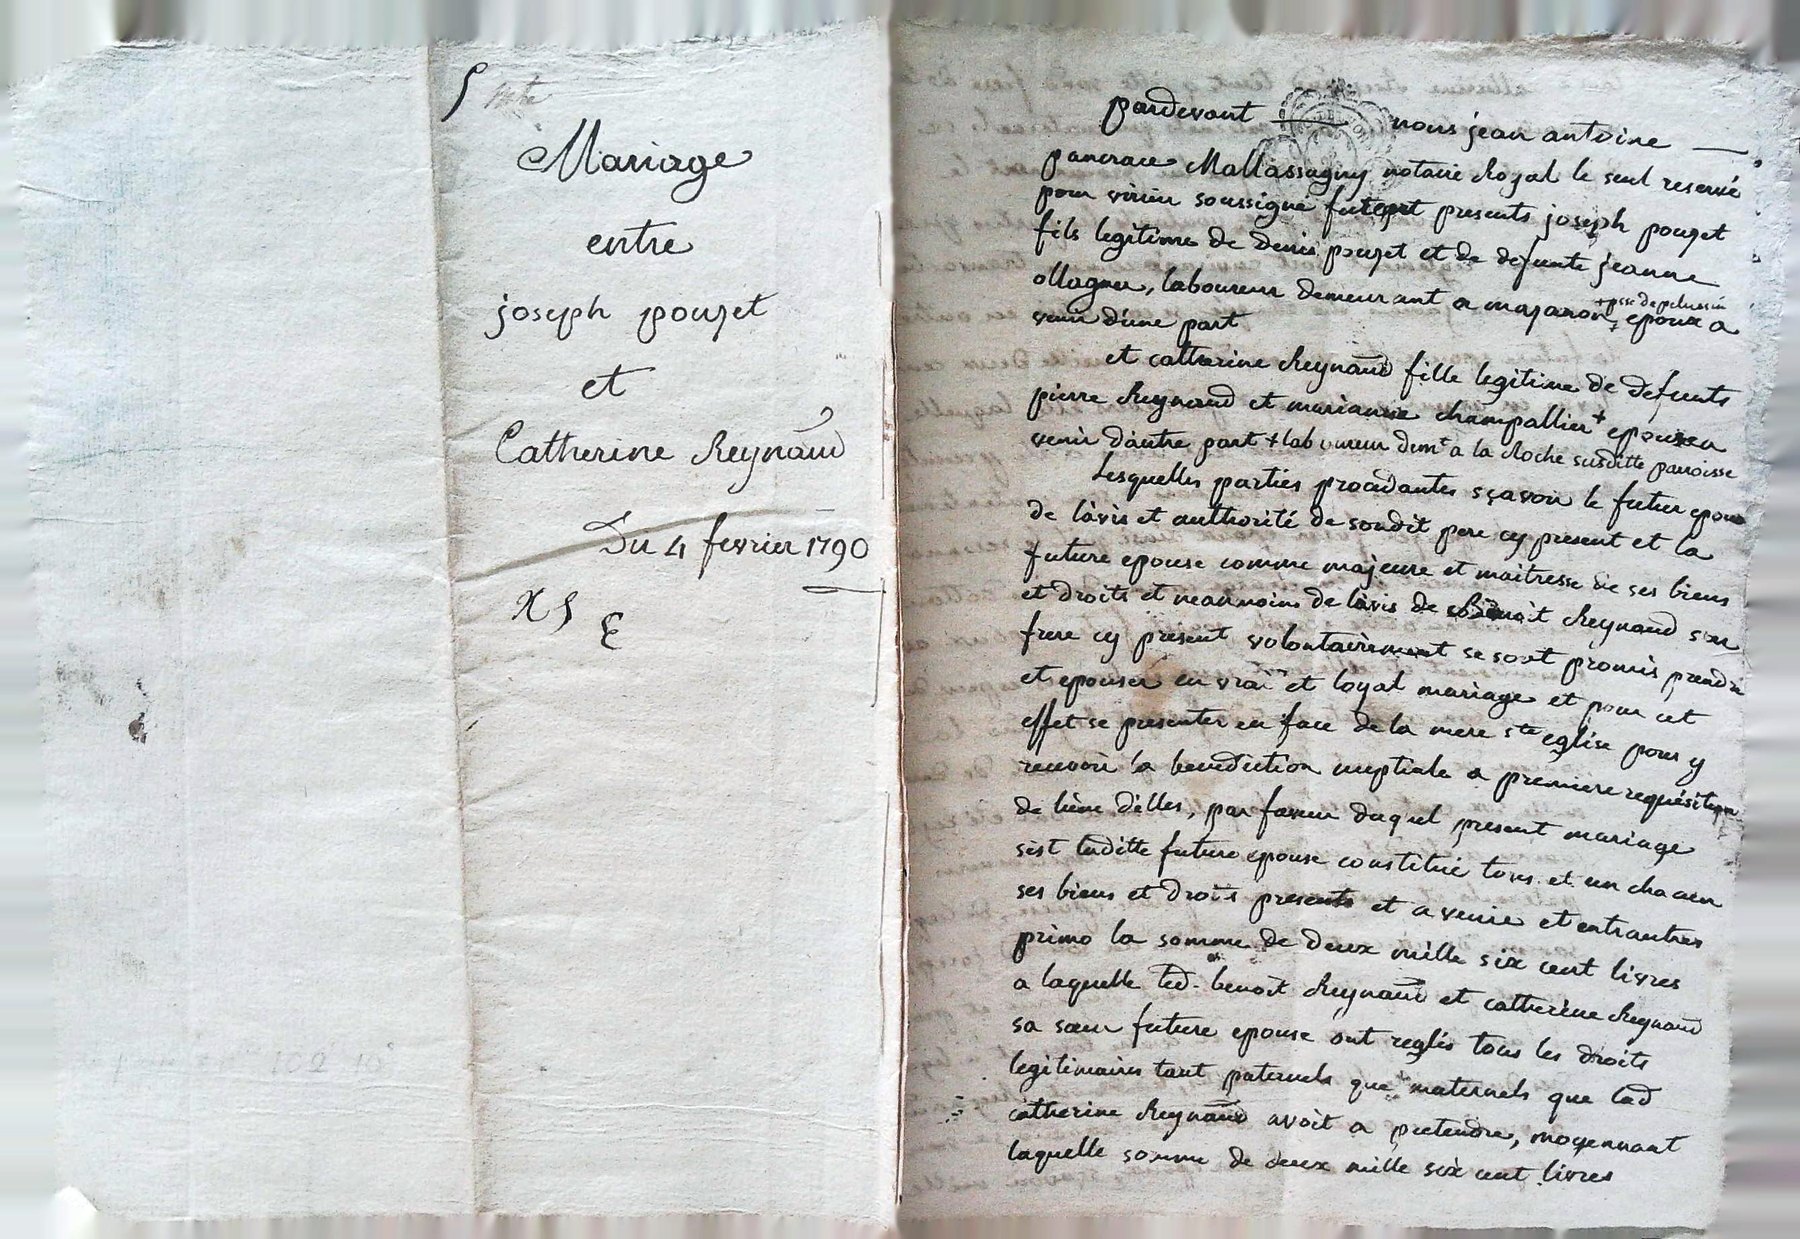 Mariage
entre
joseph pouzet
et
Catherine Reynaud
Du 4 fevrier 1790
pardevant nous jean antoine
pancrace Mallassagny notaire Royal le seul reservé
pour virieu soussigné furent presents joseph pouzet
fils legitime de denis pouzet et de defunte jeanne
ollagner, laboureur demeurant a mazanon +psse de pelussin epoux a
venir d'une part
et catherine Reynaud fille legitime de defunts
pierre Reynaud et marianne champallier + epouse a
venir d'autre part + laboureur demt a la Roche susditte paroisse
Lesquelles parties procedantes sçavoir le futur epoux
de l'avis et authorité de soudit pere cy present et la
future epouse comme majeure et maitresse de ses biens
et droits et neanmoins de l'avis de benoit Reynaud son
frere cy present volontairement se sont promis prendre
et epouser en vrai et loyal mariage et pour cet
effet se presenter en face de la mere ste eglise pour y
recevoir la benediction nuptiale a premiere requisition
de l'une d'elles, par faveur duquel present mariage
s'est laditte future epouse constitué tous et un chacun
ses biens et droits presents et a venir et entr'autres
primo la somme de deux mille six cent livres
a laquelle led. benoit Reynaud et catherine Reynaud
sa sœur future epouse ont reglés tous les droits
legitimaires tant paternels que maternels que lad
catherine Reynaud avoit a pretendre, moyennant
laquelle somme de deux mille six cent livres